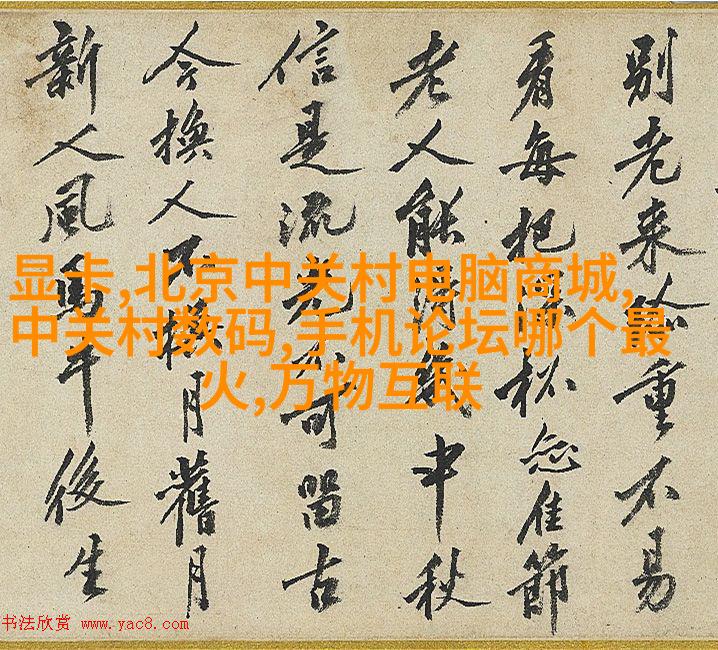 別老来重不易
看每把深杯戀佳節
老人能得幾中秋
信是流光不可留古
今換人不換月舊月
新人風馬牛後生
显卡,北京中关村电脑商城,
中关村数码,手机论坛哪个最
火,万物互联
书法欣赏 www.yac8.com